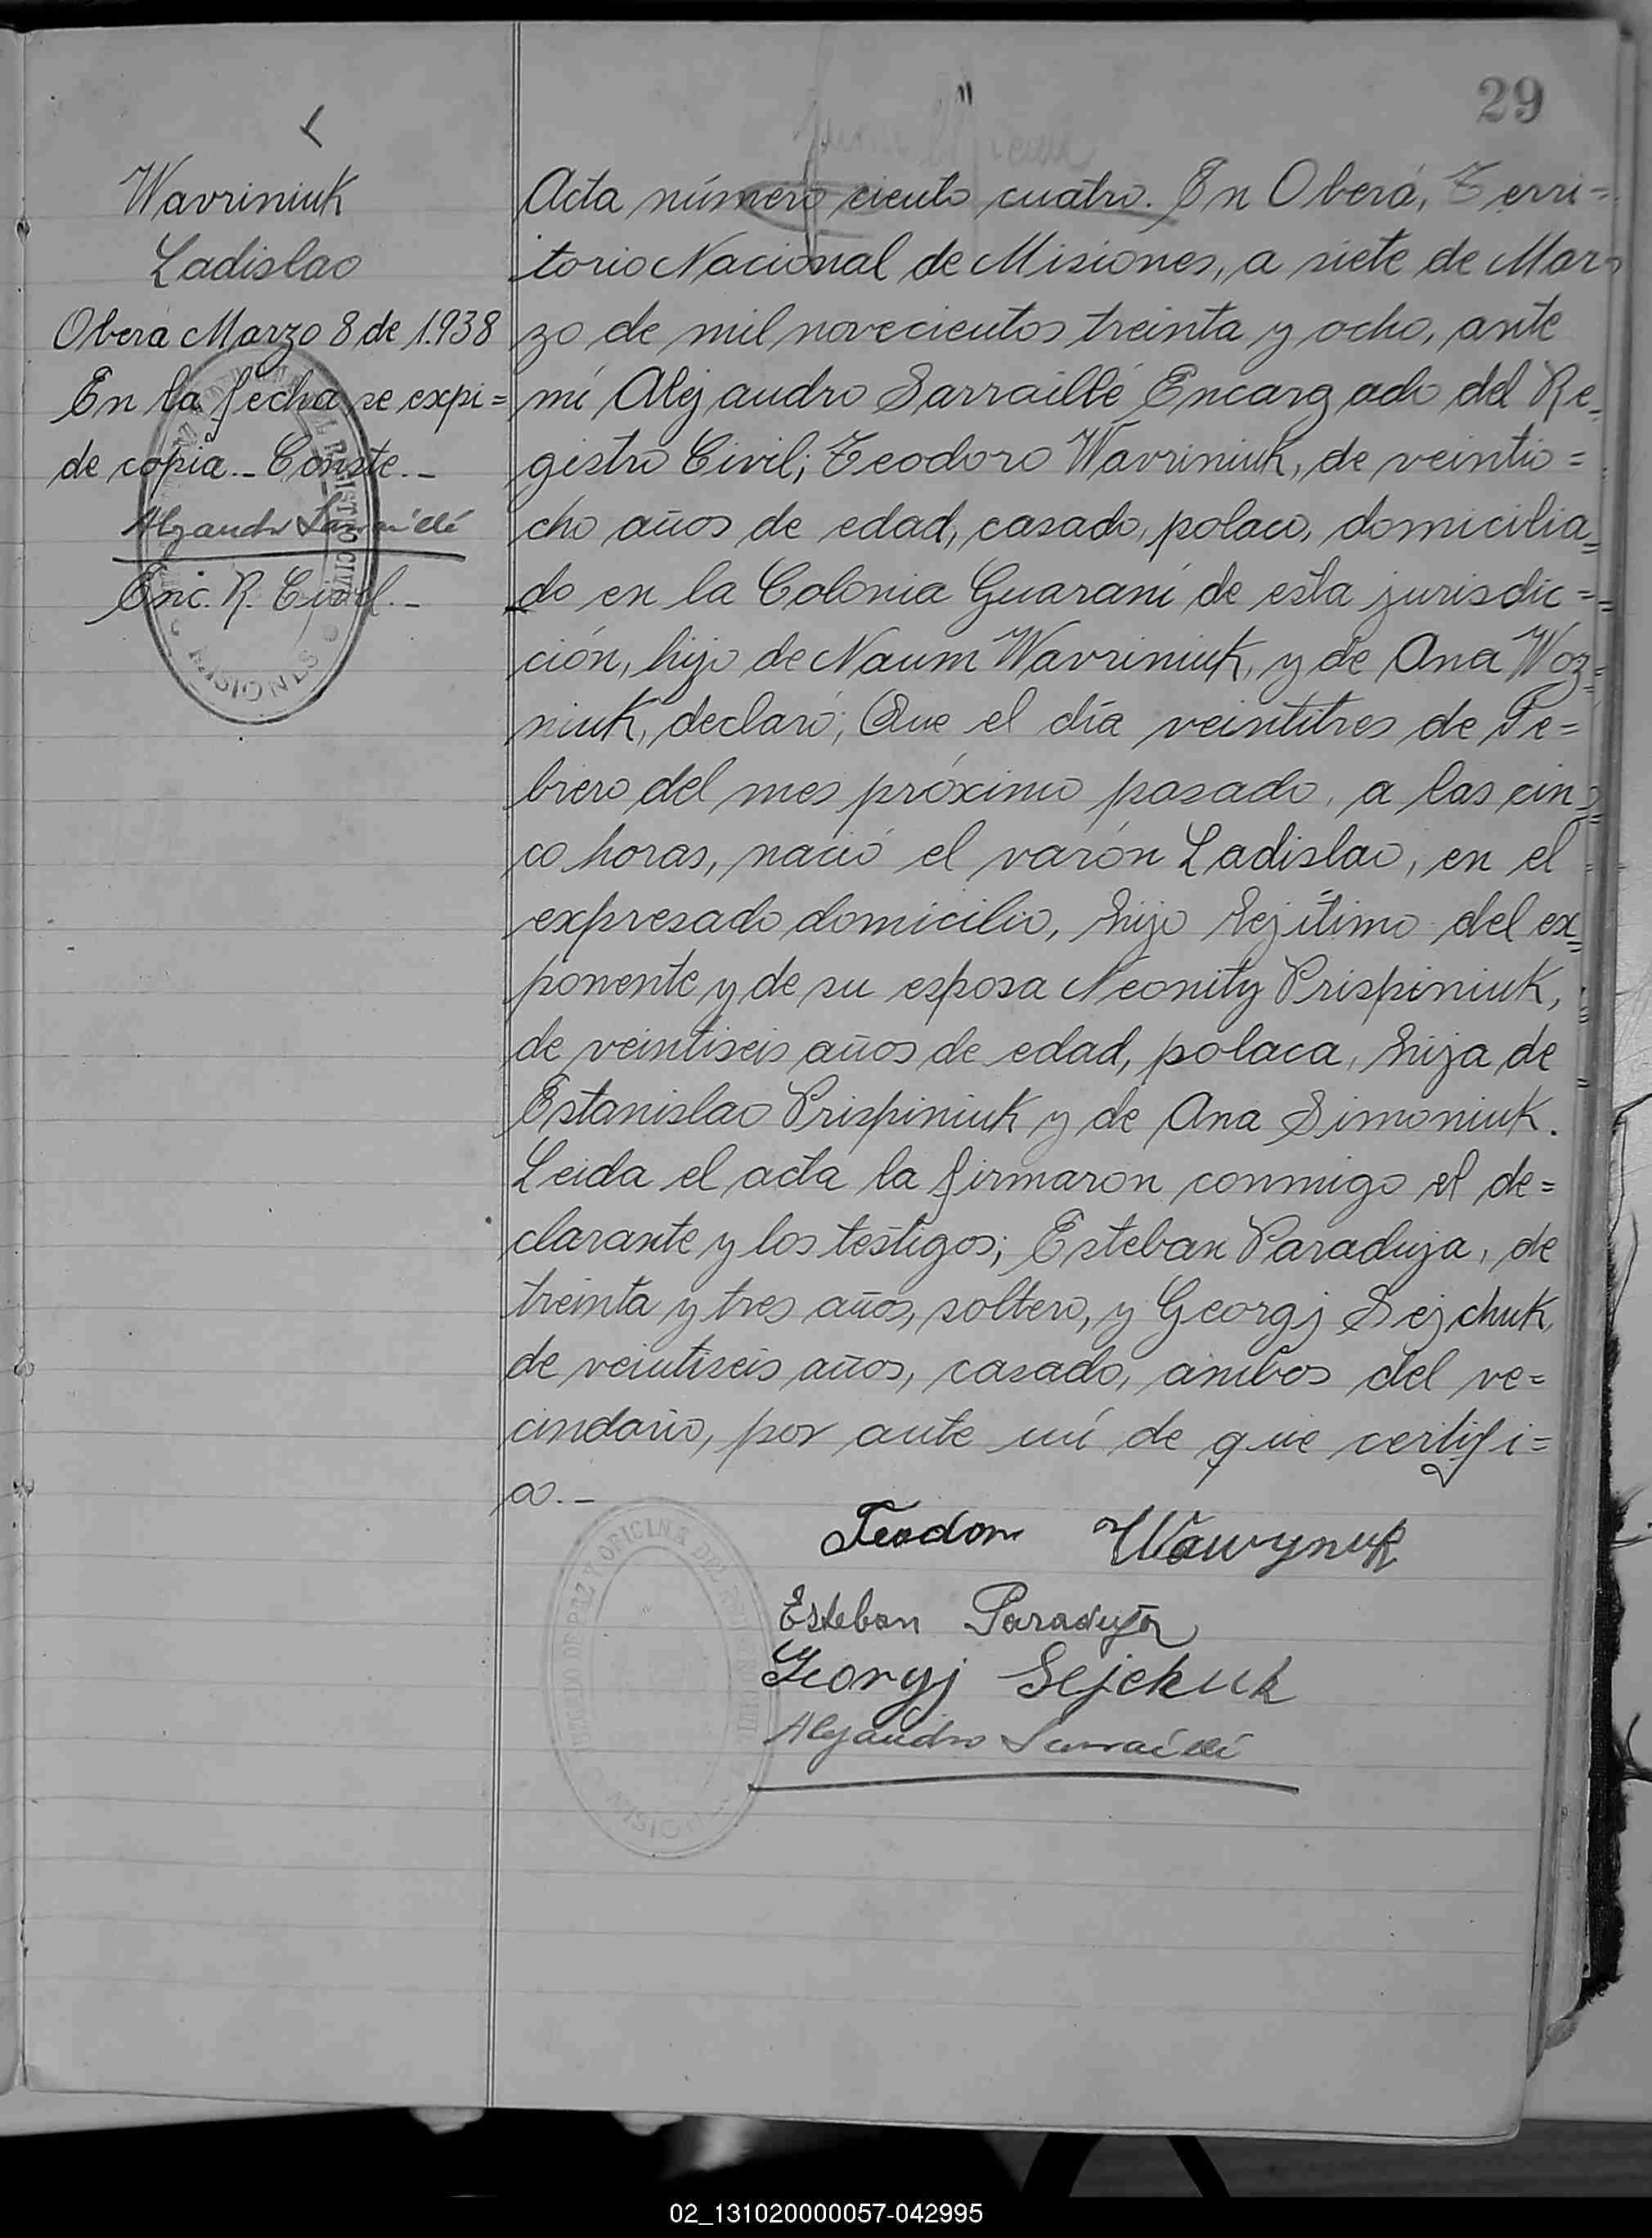 29
Wavriniuk
Ladislao
Oberá Marzo 8 de 1.938
En la fecha se expi=
de copia._ Conste._
Alejandro Sarraillé
Enc. R. Civil._
REGISTRO CIVIL
MISIONES
Acta número ciento cuatro. En Oberá, Terri=
torio Nacional de Misiones, a siete de Mar=
zo de mil novecientos treinta y ocho, ante
mí Alejandro Sarraillé Encargado del Re=
gistro Civil; Teodoro Wavriniuk, de veintio=
cho años de edad, casado, polaco, domicilia=
do en la Colonia Guaraní de esta jurisdic=
ción, hijo de Naum Wavriniuk, y de Ana Woz=
niuk, declaró; Que el día veintitres de Fe=
brero del mes próximo pasado, a las cin=
co horas, nació el varón Ladislao, en el
expresado domicilio, hijo lejítimo del ex=
ponente y de su esposa Neonity Prispiniuk,
de veintiseis años de edad, polaca, hija de
Estanislao Prispiniuk y de Ana Simoniuk.
Leida el acta la firmaron conmigo el de=
clarante y los testigos; Esteban Paraduja, de
treinta y tres años, soltero, y Georgj Sejchuk,
de veintiseis años, casado, ambos del ve=
cindario, por ante mí de que certifi=
co._
Teodor Wawynuk
Esteban Paraduja
Georgj Sejchuk
Alejandro Sarraillé
JUZGADO DE PAZ Y OFICINA DEL REGISTRO CIVIL
MISIONES
02_131020000057-042995